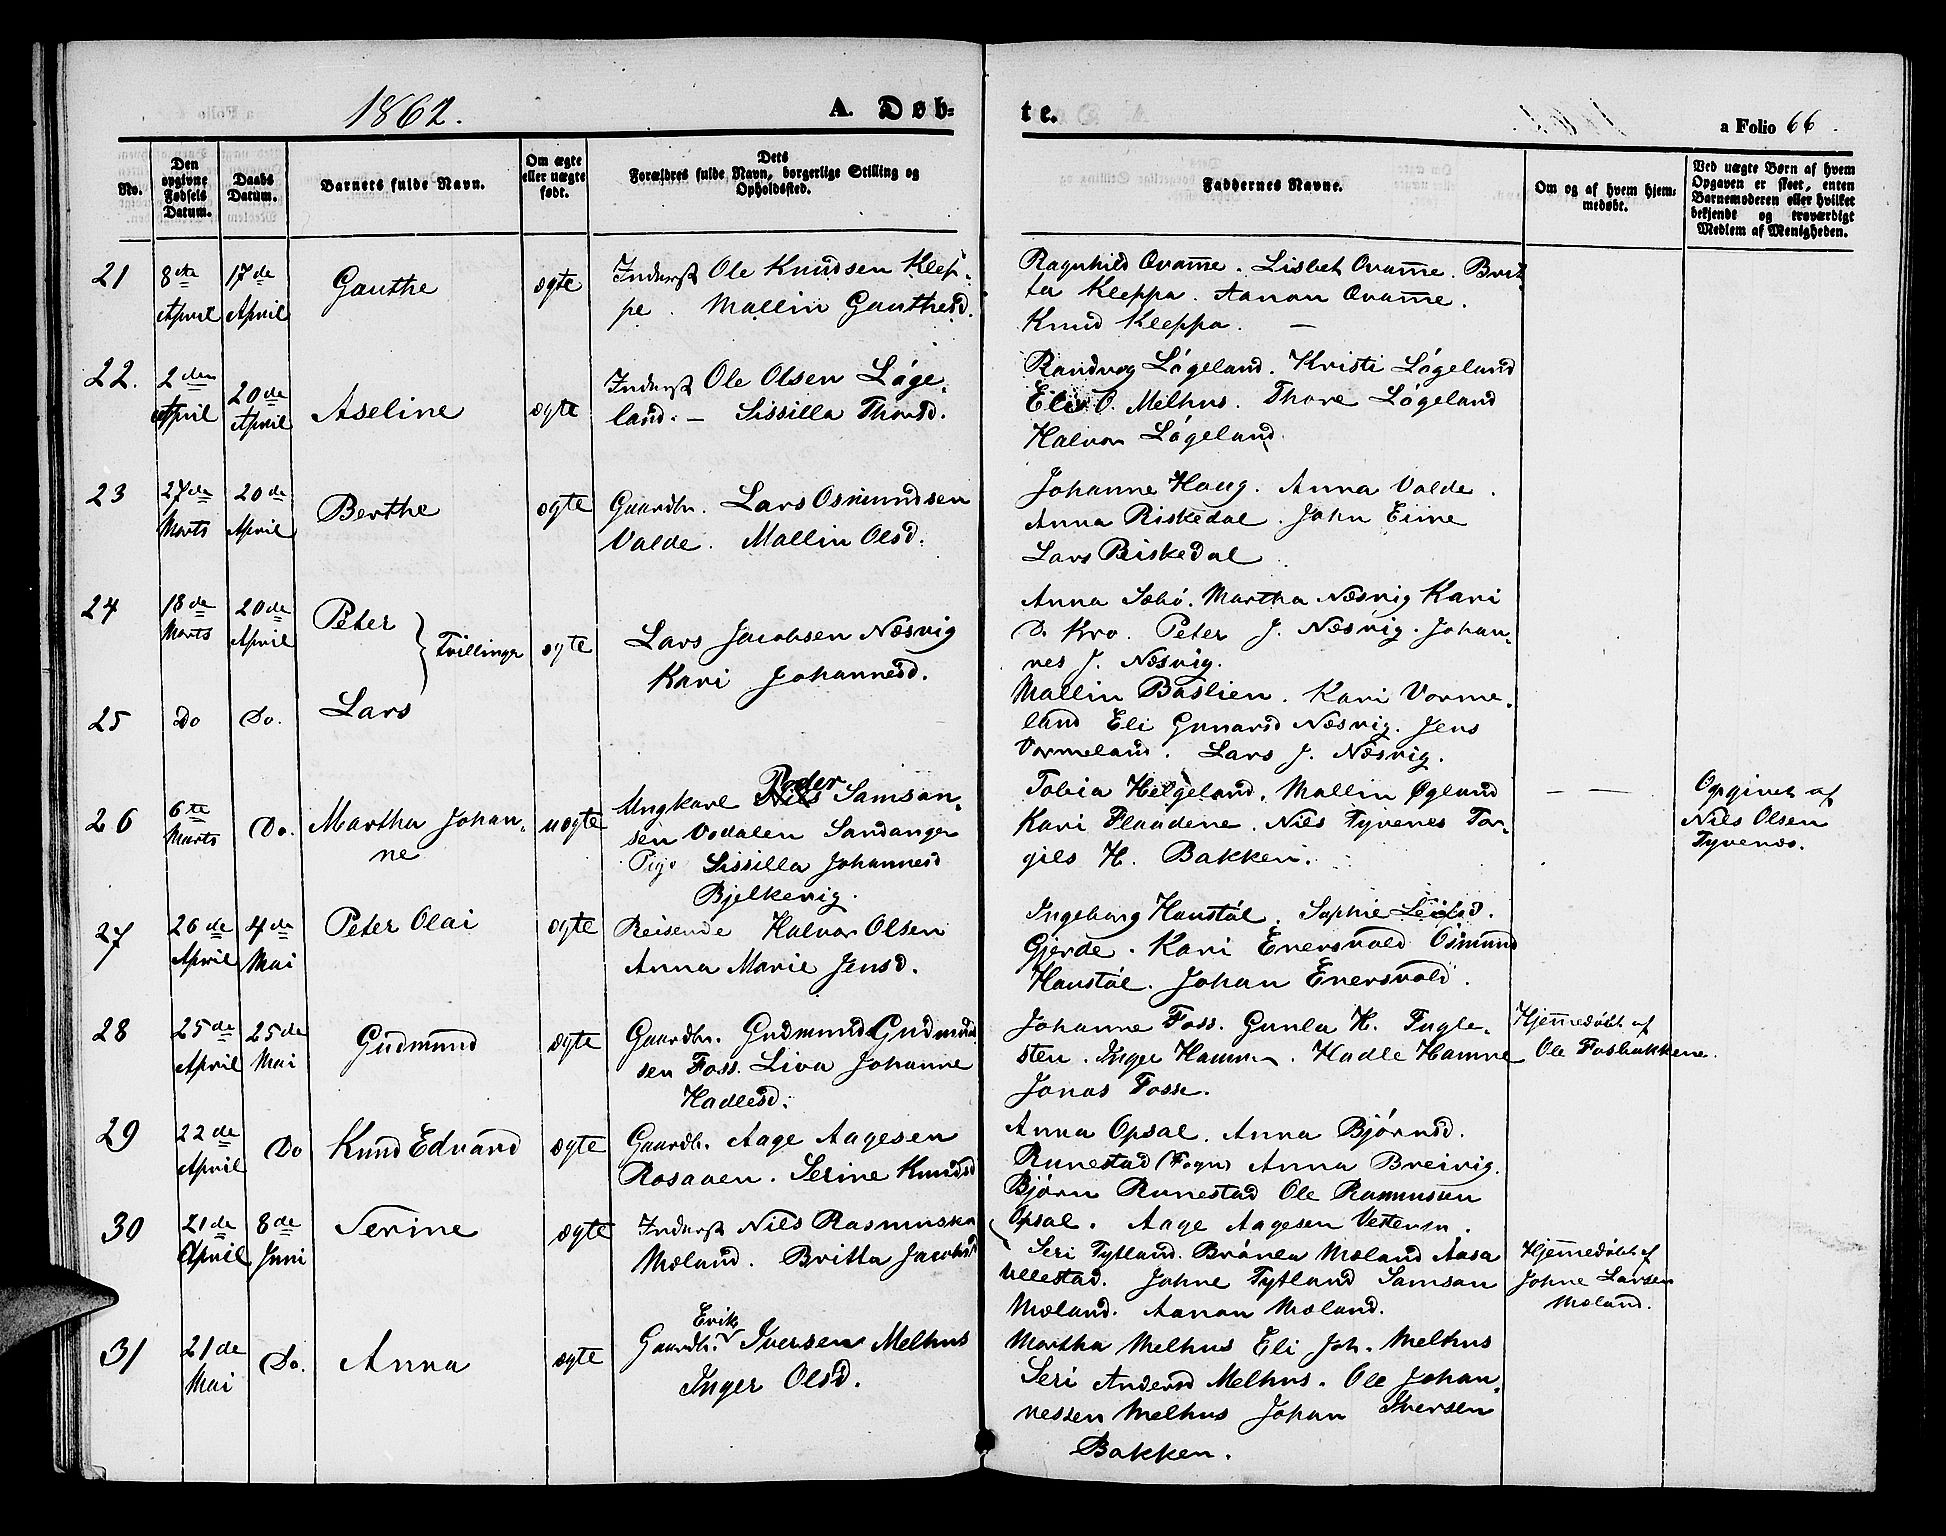 1862.
A. Døb-
te.
a Folio 66.
No.
Den opgivne Fødsels Datum.
Daabs Datum.
Barnets fulde Navn.
Om ægte eller uægte født.
Dets Forældres fulde Navn, borgerlige Stilling og Opholdssted.
Faddernes Navne.
Om og af hvem hjemmedøbt.
Ved uægte Børn af hvem Opgaven er skeet, enten Barnemoderen eller hvilket bekjendt og troværdigt Medlem af Menigheden.
21 8de April 17de April Gauthe ægte Inderst Ole Knudsen Klep-
pe. Mallin Gauthesd.
Ragnhild Qvamme. Lisbet Qvamme. Brit
ta Kleppa. Aanon Qvamme.
Knud Kleppa. —
22. 2den April 20de April Aseline ægte Inderst Ole Olsen Løge-
land. — Sissilla Thorsd.
Randvog Løgeland. Kristi Løgeland
Elis O. Melhus. Thore Løgeland
Halvor Løgeland.
23 27de Marts 20de April Berthe ægte Gaardbr. Lars Osmundsen
Valde. Mallin Olsd.
Johanne Haug. Anna Valde.
Anna Riskedal. John Eime
Lars Riskedal.
24 18de Marts 20de April Peter Tvillinger ægte Lars Jacobsen Næsvig
Kari Johannesd.
Anna Sæbø. Martha Næsvig Kari
D. Kro. Peter J. Næsvig. Johan-
nes J. Næsvig.
25 Do Do. Lars
Mallin Baslien. Kari Vorme-
land Eli Gunarsd Næsvig. Jens
Vormeland. Lars J. Næsvig.
26 6te Marts Do. Martha Johan-
ne uægte Ungkarl Peder Samson-
sen Vodalen Sandanger
Pige Sissilla Johannesd
Bjelkevig.
Tobia Helgeland. Mallin Øglund
Kari Flaadene. Nils Tyvenes Tor-
gils H. Bakken.
— —
Opgivet af
Nils Olsen
Tyvenæs.
27 26de April 4de Mai Peter Olai ægte Reisende Halvor Olsen
Anna Marie Jensd.
Ingeborg Haustøl. Sophie
Gjerde. Kari Enersvold Osmund
Haustøl. Johan Enersvold.
28 25de April 25de Mai Gudmund ægte Gaardbr. Gudmund Gudmund
sen Foss. Liva Johanne
Hadlesd.
Johanne Foss. Gunla H. Fugle-
sten. Inger Hamne. Hadle Hamne
Jonas Fosse.
Hjemmedøbt af
Ole Fosbakkene.
29 22de April Do Knud Edvard ægte Gaardbr. Aage Aagesen
Rosaaen. Serine Knudsd
Anna Opsal. Anna Bjørnsd.
Runestad (Fogn) Anna Breivig.
Bjørn Runestad Ole Rasmusen
Opsal. Aage Aagesen
30 21de April 8de Juni Serine ægte Inderst Nils Rasmussen
Mæland. Britta Jacobsd
Seri Tytland. Brønla Mæland Aasa
Ullestad. Johne Tytland Samson
Mæland. Aanon Mæland.
Hjemmedøbt af
Johne Larsen
Mæland.
31 21de Mai Do. Anna ægte Gaardbr. Erik Iversen Melhus
Inger Olsd.
Martha Melhus Eli Joh. Melhus
Seri Andersd Melhus. Ole Johan-
nessen Melhus Johan Iversen
Bakken.